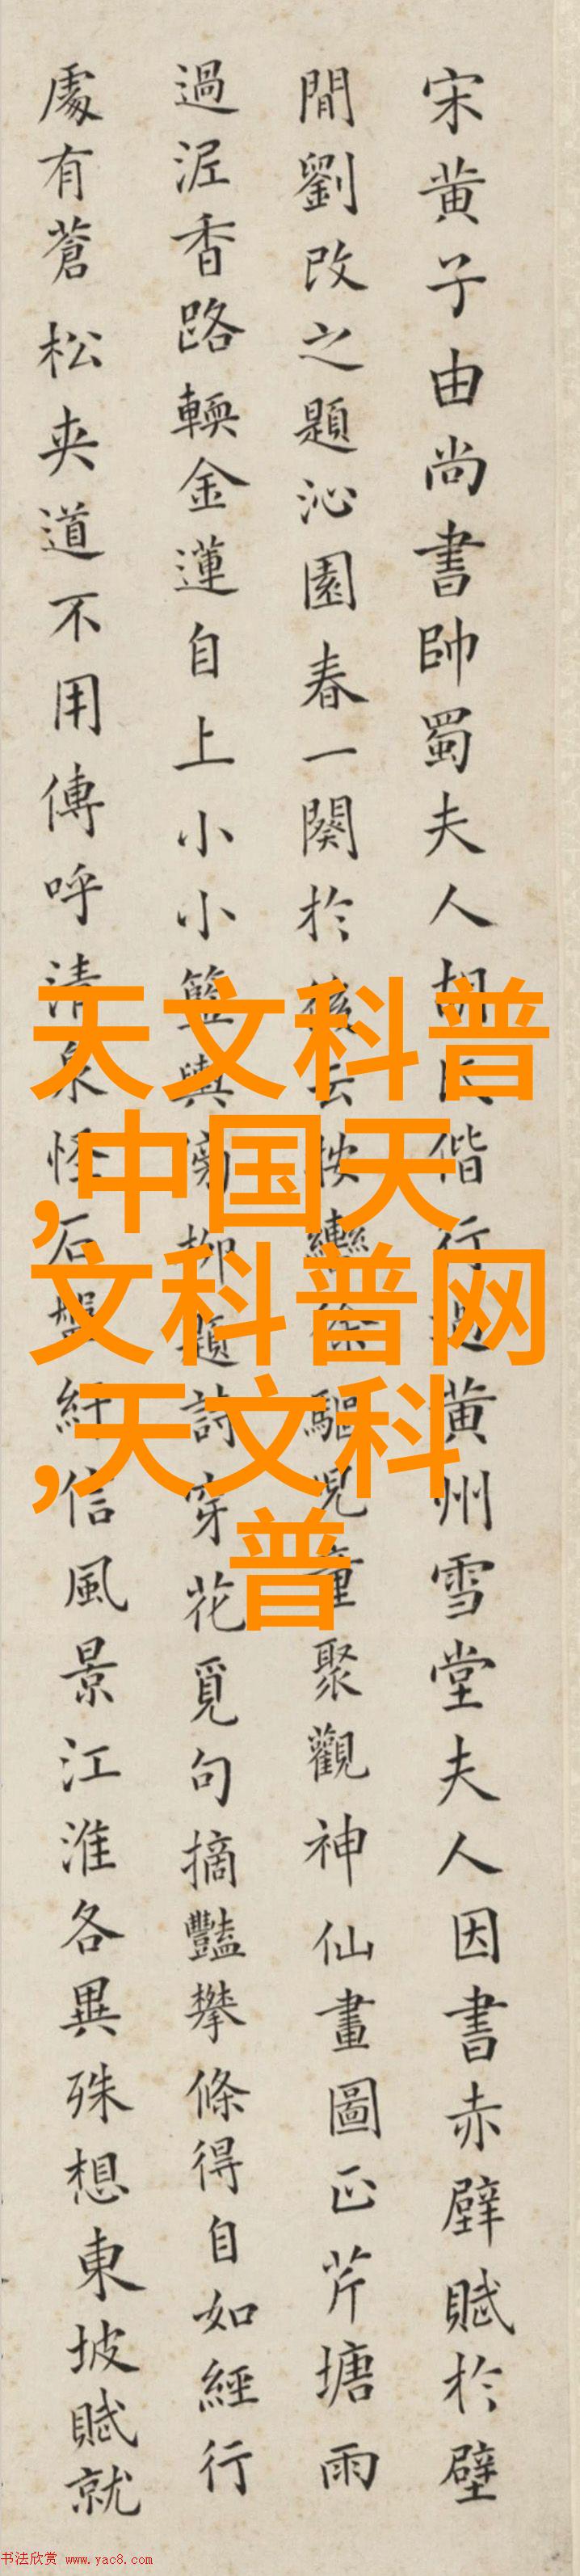 宋黄子由尚書帥蜀夫人胡氏偕行過黄州雪堂夫人因書赤壁賦於壁
間劉改之題沁園春一闋於後云按轡徐驅兒童聚觀神仙畫圖正芹塘雨
過泥香路輭金蓮自上小小籃輿傍柳題詩穿花覓句摘豔攀條得自如經行
處有蒼松夾道不用傳呼清泉怪石盤紆信風景江淮各異殊想東坡賦就
天文科普
,中国天
文科普网
,天文科
普
书法欣赏 www.yac8.com